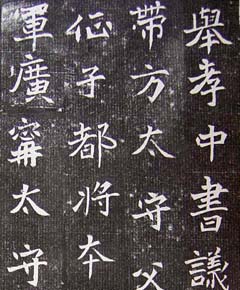 舉孝中書議
帶方太守父
佂子都将本
軍廣甯太守